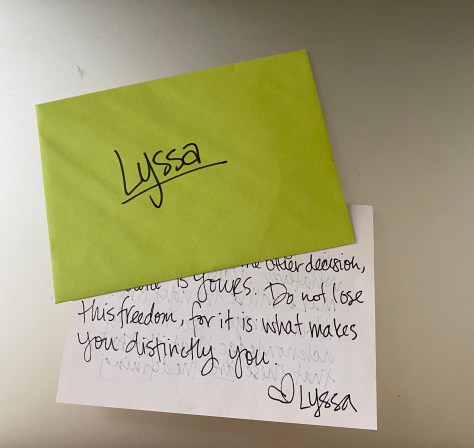 Lyssa
other decision,
is yours. Do not lose
this freedom, for it is what makes
you distinctly you.
♡ Lyssa